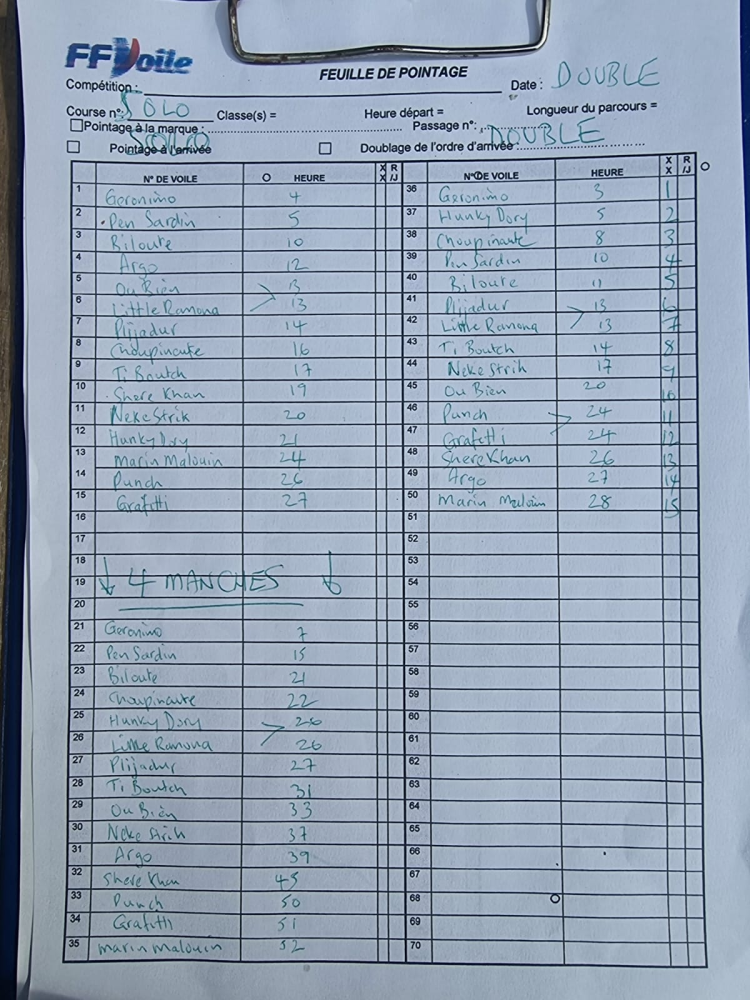 FFVoile
FEUILLE DE POINTAGE
Compétition :
Date : DOUBLE
Course n°: SOLO Classe(s) = Heure départ = Longueur du parcours =
Pointage à la marque : Passage n°: DOUBLE
Pointage à l'arrivée SOLO Doublage de l'ordre d'arrivée :
N° DE VOILE O HEURE X X R /J
1 Geronimo 4
2 Pen Sardin 5
3 Biloute 10
4 Argo 12
5 Ou Bien 13
6 Little Ramona 13
7 Plijadur 14
8 Choupinaute 16
9 Ti Boutch 17
10 Shere Khan 19
11 Neke Strik 20
12 Hunky Dory 21
13 Marin Malouin 24
14 Punch 26
15 Grafitti 27
16
17
18
19 ↓ 4 MANCHES ↓
20
21 Geronimo 7
22 Pen Sardin 15
23 Biloute 21
24 Choupinaute 22
25 Hunky Dory 26
26 Little Ramona 26
27 Plijadur 27
28 Ti Boutch 31
29 Ou Bien 33
30 Neke Strik 37
31 Argo 39
32 Shere Khan 45
33 Punch 50
34 Grafitti 51
35 Marin Malouin 52
N° DE VOILE HEURE X X R /J O
36 Geronimo 3 1
37 Hunky Dory 5 2
38 Choupinaute 8 3
39 Pen Sardin 10 4
40 Biloute 11 5
41 Plijadur 13 6
42 Little Ramona 13 7
43 Ti Boutch 14 8
44 Neke Strik 17 9
45 Ou Bien 20 10
46 Punch 24 11
47 Grafitti 24 12
48 Shere Khan 26 13
49 Argo 27 14
50 Marin Malouin 28 15
51
52
53
54
55
56
57
58
59
60
61
62
63
64
65
66
67
68
69
70